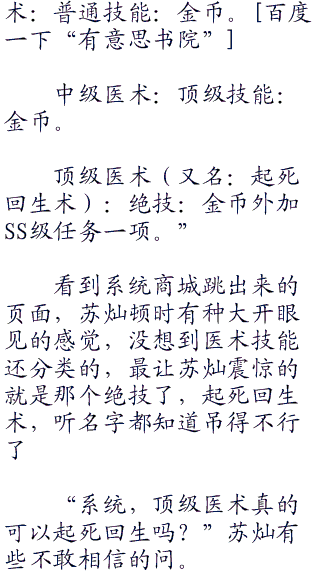 术：普通技能：金币。[百度
一下“有意思书院”]
中级医术：顶级技能：
金币。
顶级医术（又名：起死
回生术）：绝技：金币外加
SS级任务一项。”
看到系统商城跳出来的
页面，苏灿顿时有种大开眼
见的感觉，没想到医术技能
还分类的，最让苏灿震惊的
就是那个绝技了，起死回生
术，听名字都知道吊得不行
了
“系统，顶级医术真的
可以起死回生吗？”苏灿有
些不敢相信的问。